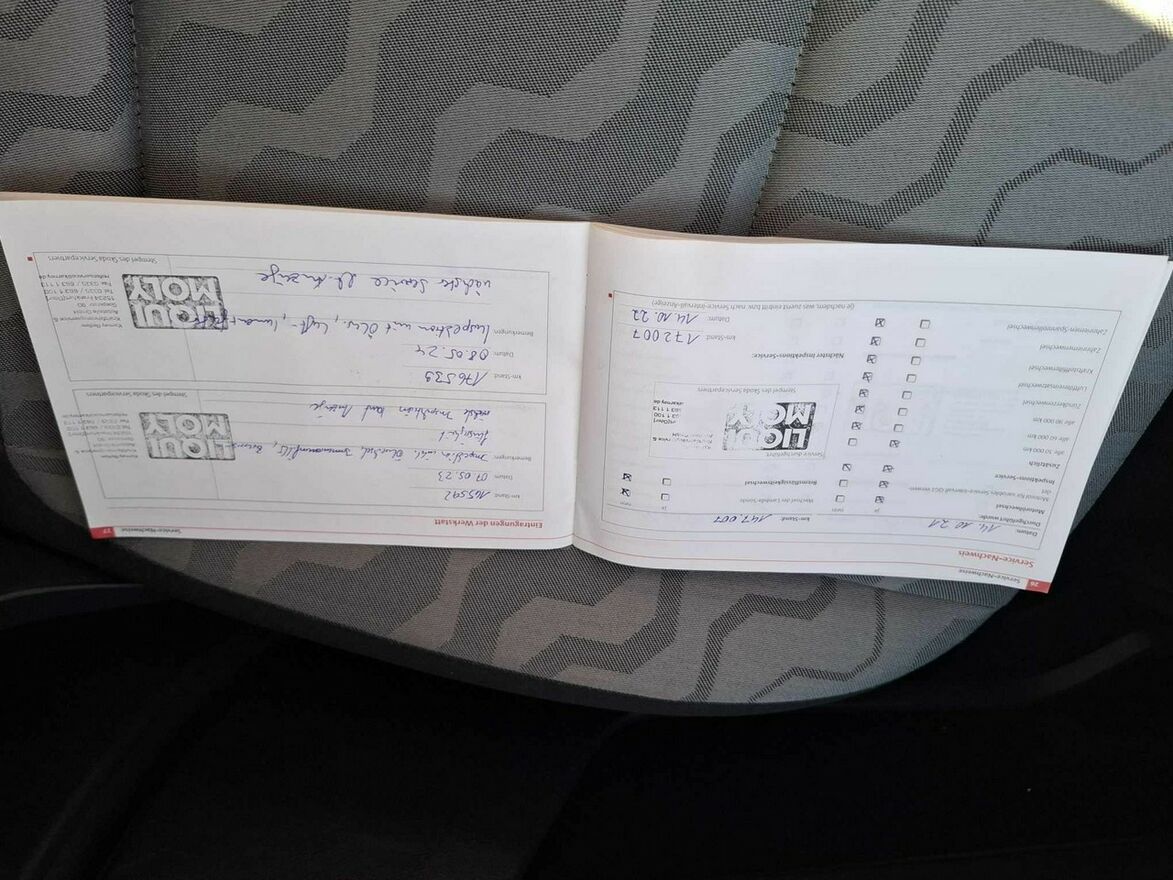 26
Service-Nachweise
Service-Nachweis
Datum: 14.10.21
km-Stand: 147.007
Durchgeführt wurde:
ja
nein
ja
nein
Motorölwechsel
Motoröl für variables Service-Intervall (QG1) verwen-
det
Inspektions-Service
Zusätzlich
alle 30 000 km
alle 60 000 km
alle 90 000 km
Zündkerzenwechsel
Luftfiltereinsatzwechsel
Kraftstofffilterwechsel
Zahnriemenwechsel
Zahnriemen-Spannrollenwechsel
Wechsel der Lambda-Sonde
Bremsflüssigkeitwechsel
Service durchgeführt:
LIQUI
MOLY
Stempel des Škoda Servicepartners
Nächster Inspektions-Service:
km-Stand: 172007
Datum: 14.10.22
(je nachdem, was zuerst eintritt bzw. nach Service-Intervall-Anzeige)
Service-Nachweise
27
Eintragungen der Werkstatt
km-Stand: 165592
Datum: 07.05.23
Bemerkungen: Inspektion inkl. Ölwechsel,
Anzeige
LIQUI
MOLY
Stempel des Škoda Servicepartners
km-Stand: 176539
Datum: 08.05.24
Bemerkungen: Inspektion mit Ölw., Luft-,
nächste Service lt. Anzeige
LIQUI
MOLY
Kfz-Meisterservice &
Autoteile GmbH
15234 Frankfurt(Oder)
Tel. 0335 / 663 1 100
Fax 0335 / 663 1 113
Stempel des Škoda Servicepartners